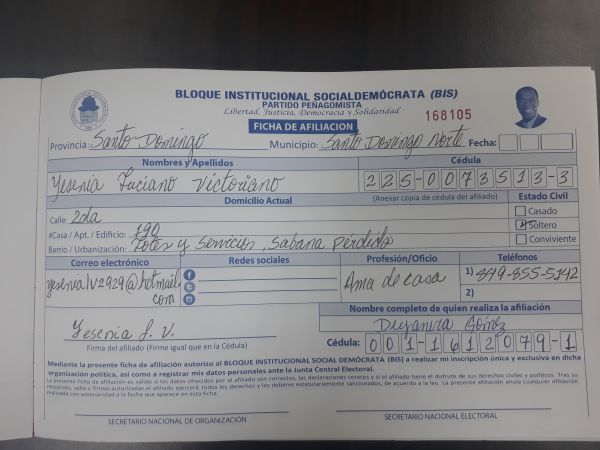 BLOQUE INSTITUCIONAL SOCIALDEMÓCRATA (BIS)
PARTIDO PEÑAGOMISTA
Libertad, Justicia, Democracia y Solidaridad
168105
FICHA DE AFILIACIÓN
Provincia: Santo Domingo Municipio: Santo Domingo Norte Fecha:
Nombres y Apellidos Cédula
Yesenia Luciano Victoriano 225-0073513-3
Domicilio Actual (Anexar copia de cédula del afiliado) Estado Civil
Calle: 2da Casado
#Casa / Apt. / Edificio: #90 Soltero
Barrio / Urbanización: Lotes y Servicios, Sabana Pérdida Conviviente
Correo electrónico Redes sociales Profesión/Oficio Teléfonos
yesenialv2929@hotmail.com Ama de casa 1) 849-855-5142
2)
Nombre completo de quien realiza la afiliación
Deyanira Gómez
Yesenia L. V.
Firma del afiliado (Firme igual que en la Cédula) Cédula: 001-1612079-1
Mediante la presente ficha de afiliación autorizo al BLOQUE INSTITUCIONAL SOCIAL DEMÓCRATA (BIS) a realizar mi inscripción única y exclusiva en dicha
organización política, así como a registrar mis datos personales ante la Junta Central Electoral.
La presente ficha de afiliación es válida si los datos ofrecidos por el afiliado son correctos, las declaraciones veraces y si el afiliado tiene el disfrute de sus derechos civiles y políticos. Tras su
recepción, sello y firmas autorizadas el afiliado ejercerá todos los derechos y los deberes estatutariamente sancionados, de acuerdo a la ley. La presente afiliación anula cualquier afiliación
realizada con anterioridad a la fecha que aparece en esta ficha.
SECRETARIO NACIONAL DE ORGANIZACIÓN SECRETARIO NACIONAL ELECTORAL